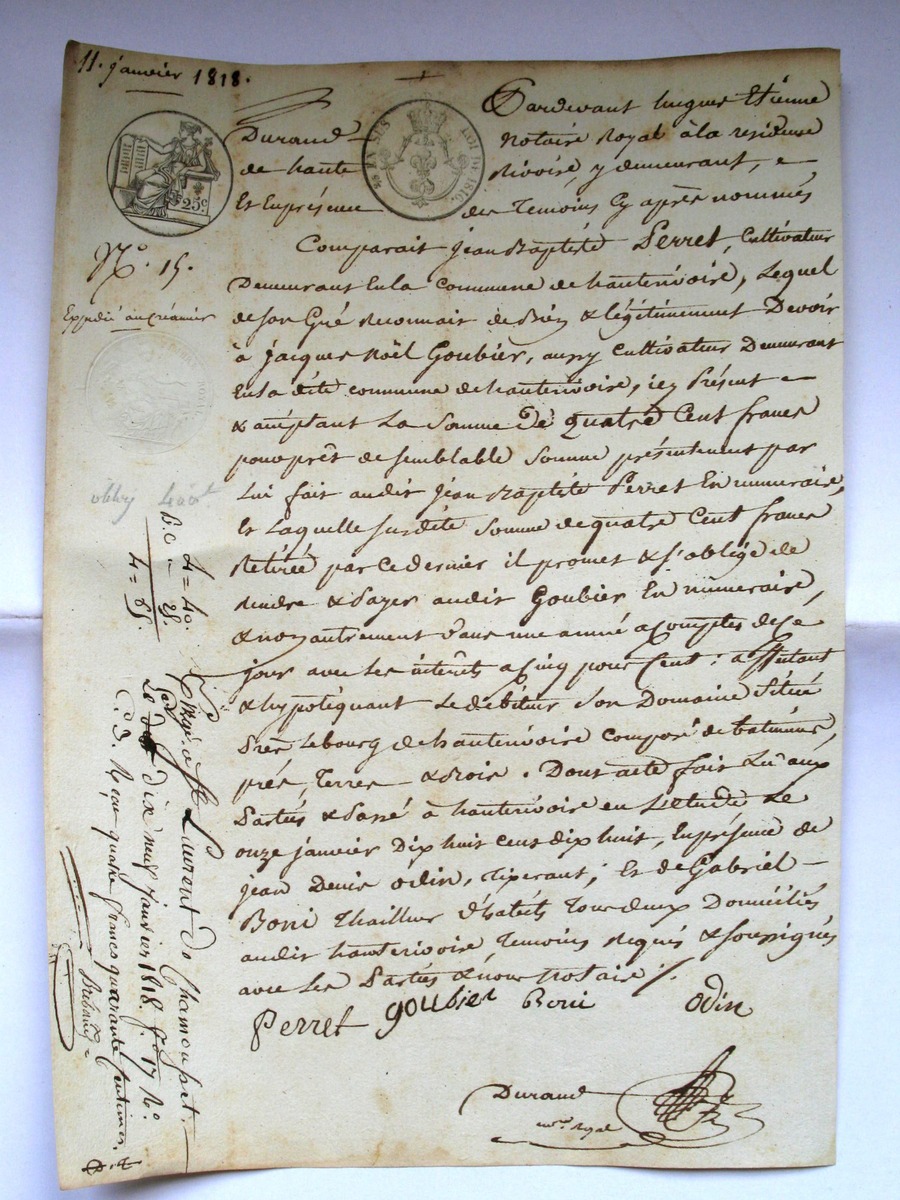 11. janvier 1818.
Pardevant hugues Etienne
Durand Notaire Royal à la residence
de haute Rivoire, y demeurant,
Et En présence des Temoins Cy après nommés
Comparait jean Baptiste Perret, Cultivateur
Demeurant En la Commune de hauterivoire, Lequel
de son Gré Reconnait de Bien & légitimement Devoir
à jacques Noël Goubier, aussy Cultivateur Demeurant
En la dite commune de hauterivoire, icy Présent
& acceptant La Somme De quatre Cent francs
pour prêt de semblable Somme présentement par
Lui fait audit jean Baptiste Perret En numeraire,
Et Laquelle susdite Somme de quatre Cent francs
Retirée par ce dernier il promet & s'oblige de
rendre & Payer audit Goubier En numeraire,
& non autrement dans une année a Comptes de ce
jour avec les intérêts a Cinq pour Cent : affectant
& hypotéquant Le débiteur Son Domaine Situé
Près Lebourg de hauterivoire composé de batimens,
prés, Terres & Bois. Dont acte fait Lu aux
Parties & Passé à hauterivoire en L'etude Le
onze janvier Dix huit cent dix huit, En présence de
jean Denis Odin, Tiserant; Et de Gabriel
Boni Thailleur d'habits Tous deux Domiciliés
audit hauterivoire, Temoins Requis & soussignés
avec les Parties & nous Notaire ./.
Perret goubier Boni Odin
Durand
Nore Royal
DROIT
25c
No. 15.
Expedié au créancier
4 = 40.
4 = 85.
Enregé a St Laurent de Chamousset.
Le dix neuf janvier 1818. fo 17 Ro
C. 3. Reçu quatre francs quarante Centimes.